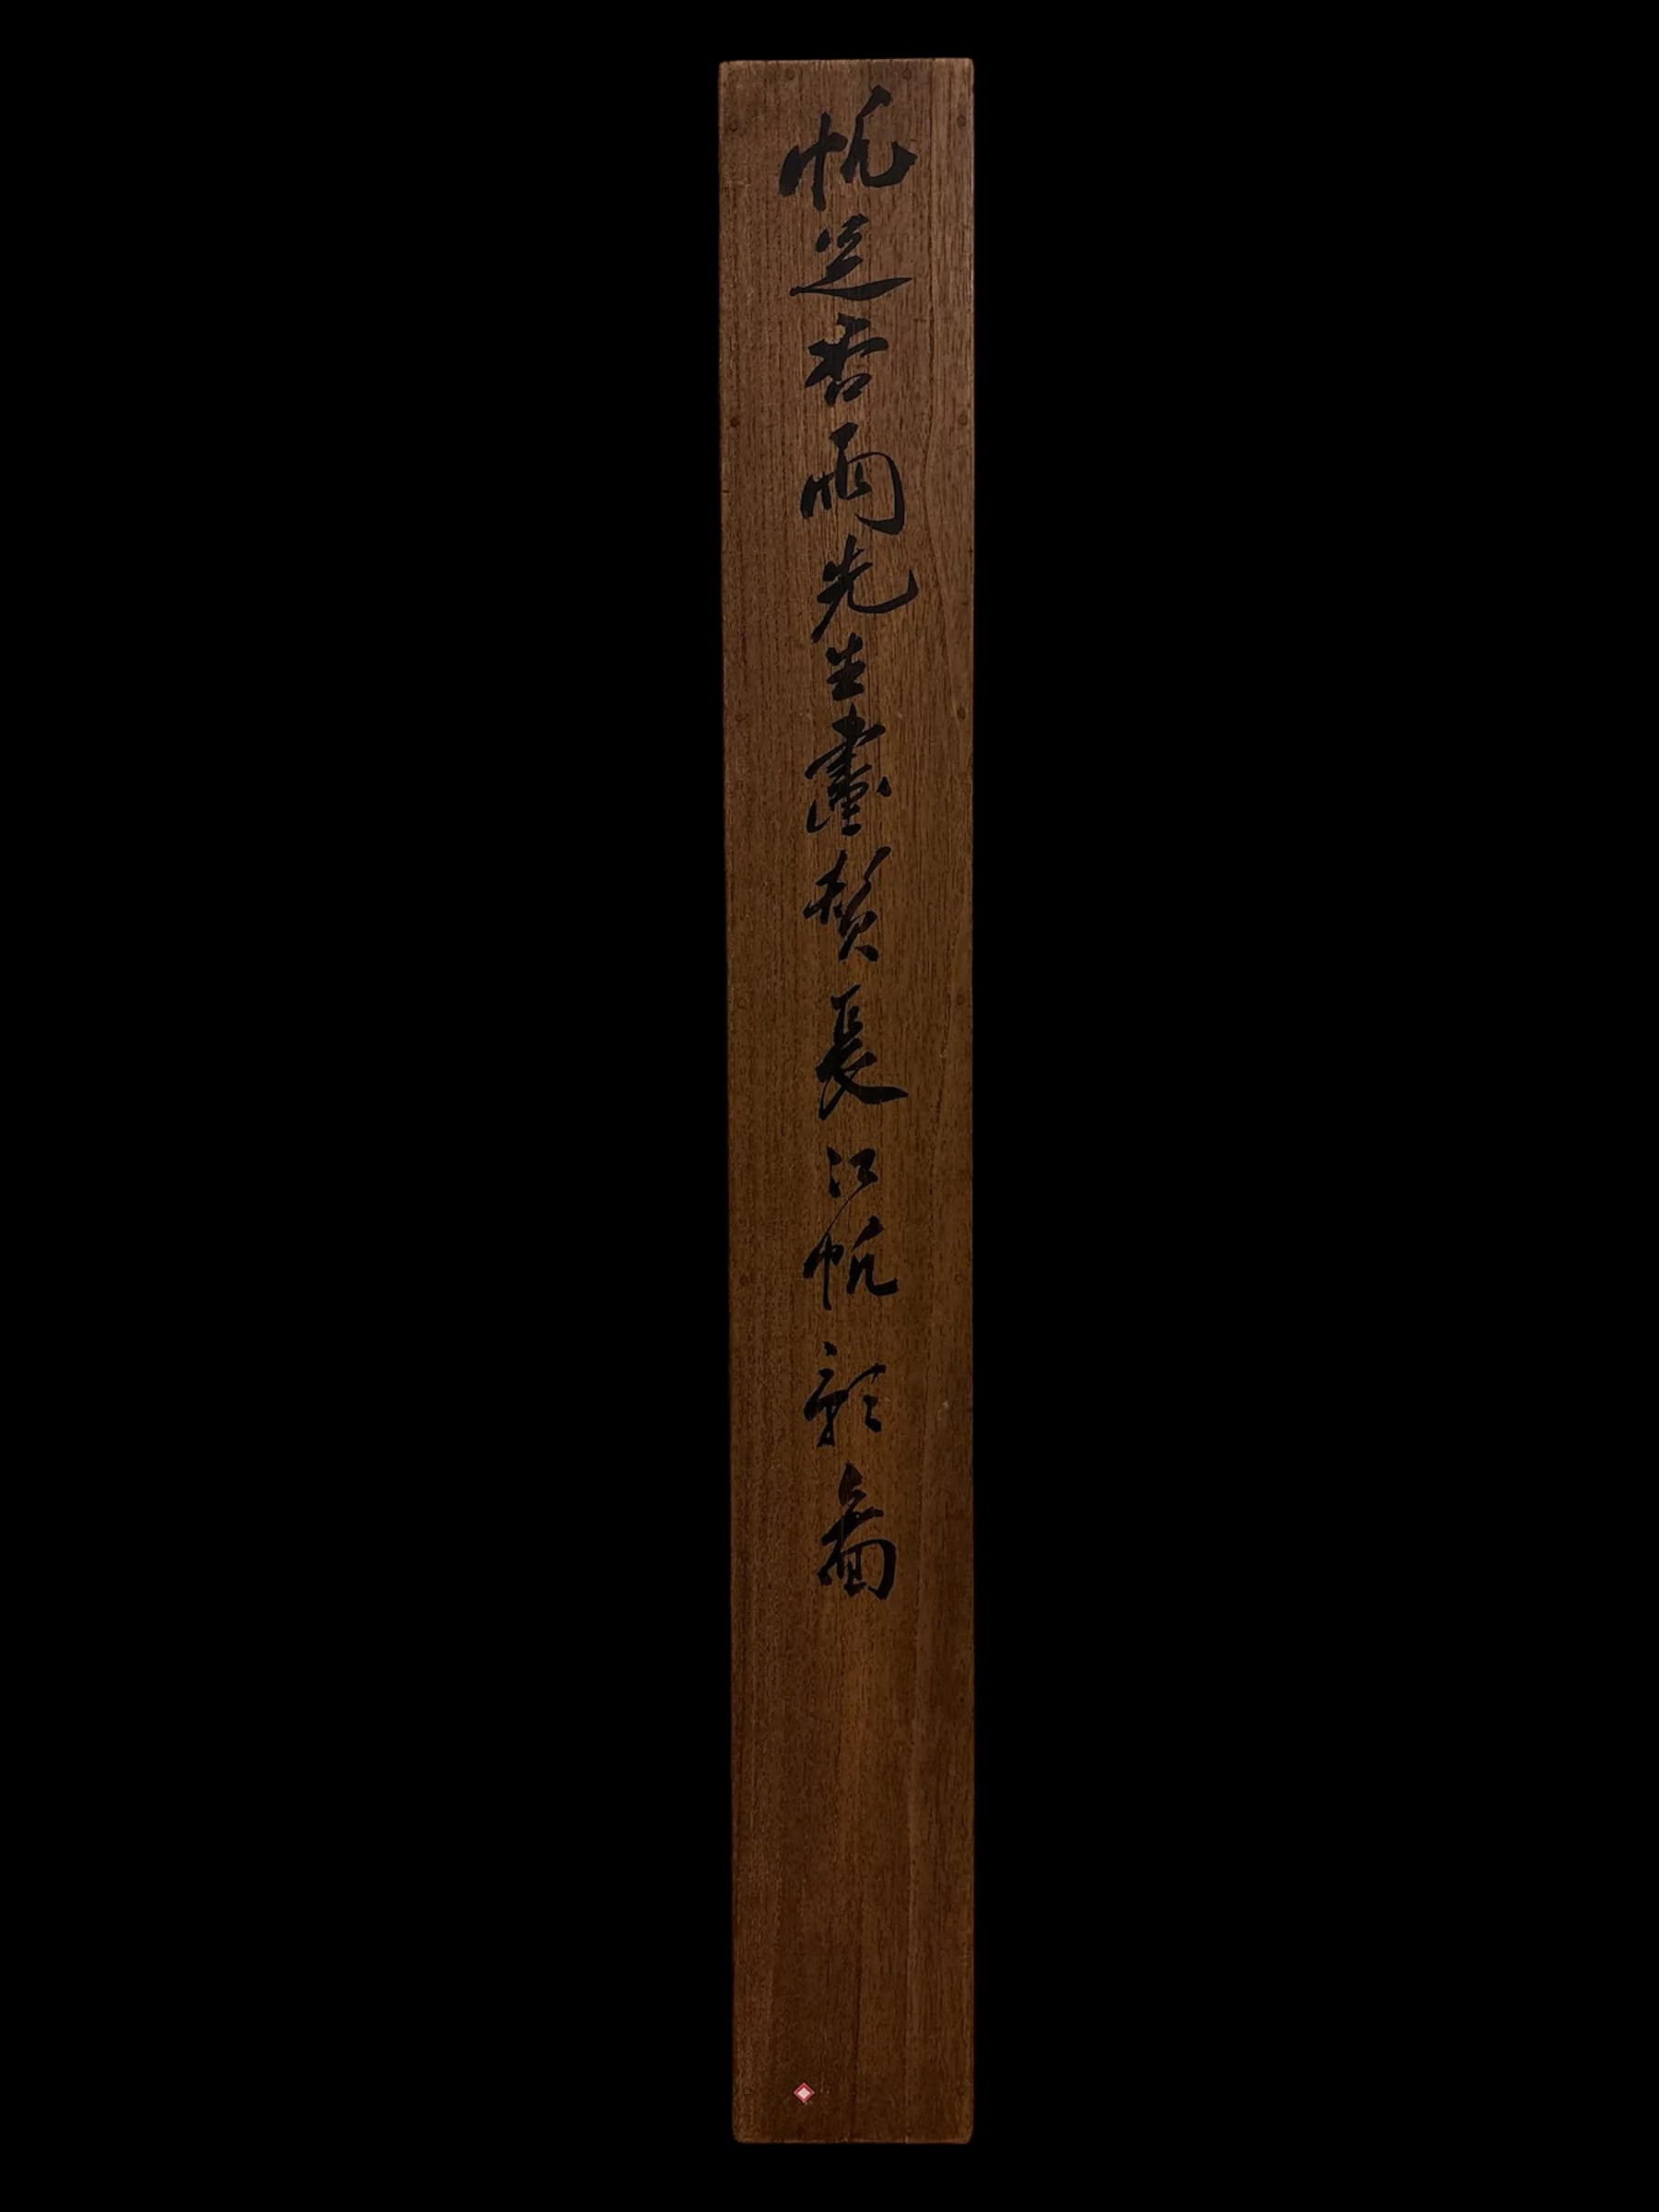 帆足杏雨先生畫賛長江帆影圖